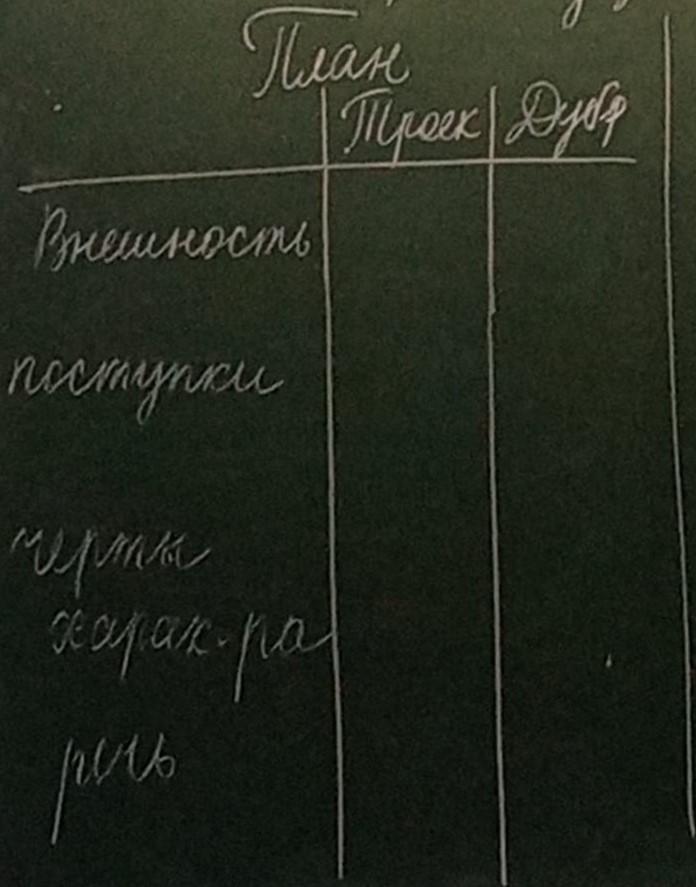 План
Троек Дубр
Внешность
поступки
черты
харак-ра
речь